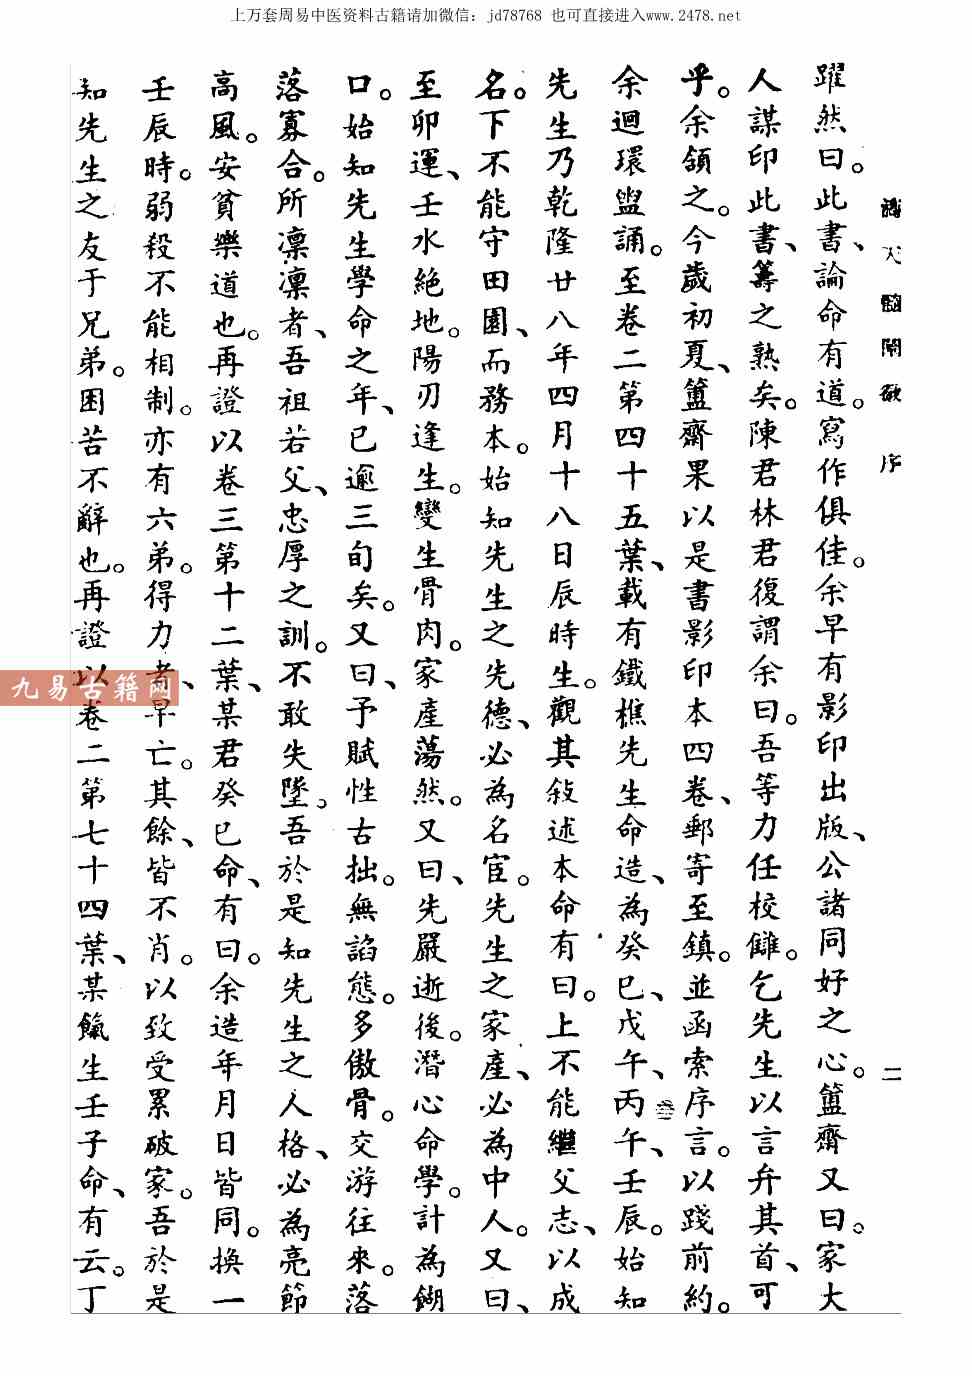 上万套周易中医资料古籍请加微信：jd78768 也可直接进入www.2478.net
滴天髓闡微 序 二
躍然曰。此書、論命有道。寫作俱佳。余早有影印出版、公諸同好之心。簠齋又曰。家大
人謀印此書、籌之熟矣。陳君林君復謂余曰。吾等力任校讎。乞先生以言弁其首、可
乎。余頷之。今歲初夏、簠齋果以是書影印本四卷、郵寄至鎮。並函索序言。以踐前約。
余迴環盥誦。至卷二第四十五葉、載有鐵樵先生命造、為癸巳、戊午、丙午、壬辰。始知
先生乃乾隆廿八年四月十八日辰時生。觀其敍述本命有曰。上不能繼父志、以成
名。下不能守田園、而務本。始知先生之先德、必為名宦。先生之家產、必為中人。又曰、
至卯運、壬水絕地。陽刃逢生。變生骨肉。家產蕩然。又曰、先嚴逝後。潛心命學。計為餬
口。始知先生學命之年、已逾三旬矣。又曰、予賦性古拙。無諂態。多傲骨。交游往來。落
落寡合。所凜凜者、吾祖若父、忠厚之訓。不敢失墜。吾於是知先生之人格、必為亮節
高風。安貧樂道也。再證以卷三第十二葉、某君癸巳命、有曰。余造年月日皆同。換一
壬辰時。弱殺不能相制。亦有六弟。得力者、早亡。其餘、皆不肖。以致受累破家。吾於是
知先生之友于兄弟。困苦不辭也。再證以卷二第七十四葉、某餼生壬子命、有云。丁
九易古籍网